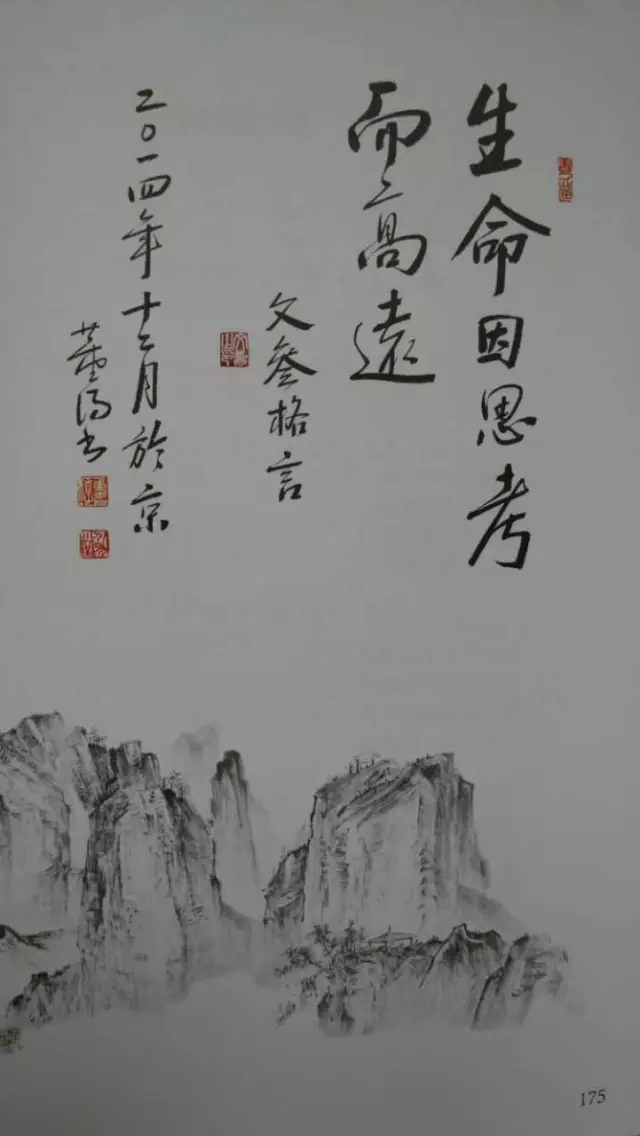 生命因思考
而高遠
文叁格言
二〇一四年十二月於京
书
175